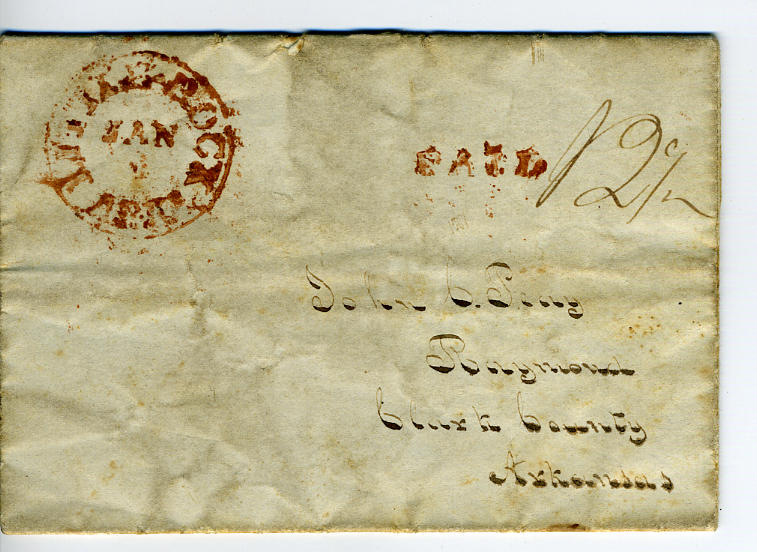 LITTLE ROCK ARK
JAN
1
PAID 12½
John C. Peay
Raymond
Clark County
Arkansas